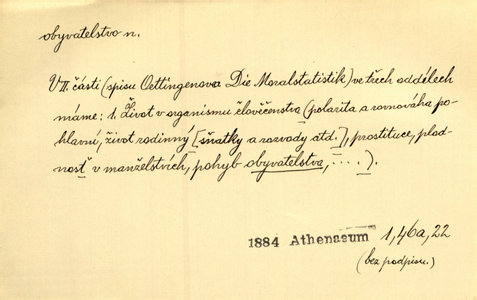 obyvatelstvo n.
V II. části (spisu Oettingenova Die Moralstatistik) ve třech oddělech
máme: 1. Život v organismu člověčenstva (polarita a rovnováha po-
hlavní, život rodinný [sňatky a rozvody atd.], prostituce, plod-
nosť v manželstvích, pohyb obyvatelstva, ....).
1884 Athenaeum 1, 46a, 22
(bez podpisu.)